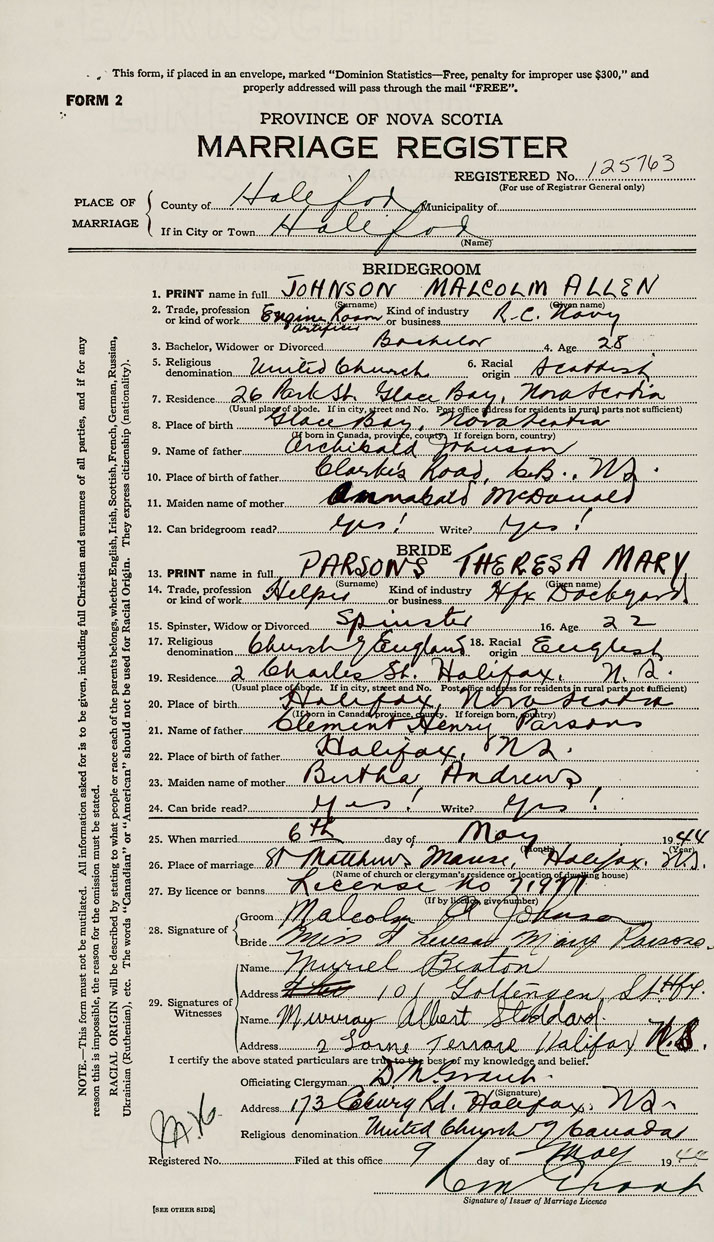 This form, if placed in an envelope, marked "Dominion Statistics—Free, penalty for improper use $300," and
properly addressed will pass through the mail "FREE".
FORM 2
PROVINCE OF NOVA SCOTIA
MARRIAGE REGISTER
REGISTERED No. 125763
(For use of Registrar General only)
PLACE OF MARRIAGE
County of Halifax Municipality of
If in City or Town Halifax
(Name)
BRIDEGROOM
1. PRINT name in full JOHNSON MALCOLM ALLEN
(Surname) (Given name)
2. Trade, profession or kind of work Engine Room artificer Kind of industry or business R.C. Navy
3. Bachelor, Widower or Divorced Bachelor 4. Age 28
5. Religious denomination United Church 6. Racial origin Scottish
7. Residence 26 Park St. Glace Bay, Nova Scotia
(Usual place of abode. If in city, street and No. Post office address for residents in rural parts not sufficient)
8. Place of birth Glace Bay, Nova Scotia
(If born in Canada, province, county. If foreign born, country)
9. Name of father Archibald Johnson
10. Place of birth of father Clarke's Road, C.B., N.S.
11. Maiden name of mother Annabald McDonald
12. Can bridegroom read? Yes! Write? Yes!
BRIDE
13. PRINT name in full PARSONS THERESA MARY
(Surname) (Given name)
14. Trade, profession or kind of work Helper Kind of industry or business Hfx Dockyard
15. Spinster, Widow or Divorced Spinster 16. Age 22
17. Religious denomination Church of England 18. Racial origin English
19. Residence 2 Charles St. Halifax, N.S.
(Usual place of abode. If in city, street and No. Post office address for residents in rural parts not sufficient)
20. Place of birth Halifax, Nova Scotia
(If born in Canada, province, county. If foreign born, country)
21. Name of father Clement Henry Parsons
22. Place of birth of father Halifax, N.S.
23. Maiden name of mother Bertha Andrews
24. Can bride read? Yes! Write? Yes!
25. When married 6th day of May 1944
(Month) (Year)
26. Place of marriage St Matthews Manse, Halifax. N.S.
(Name of church or clergyman's residence or location of dwelling house)
27. By licence or banns License no
(If by licence, give number)
28. Signature of
Groom Malcolm A Johnson
Bride Miss Theresa Mary Parsons
29. Signatures of Witnesses
Name Muriel Beaton
Address 101 Gottengen St Hfx.
Name Murray Albert Stoddard
Address 2 Lorne Terrace Halifax N.S.
I certify the above stated particulars are true to the best of my knowledge and belief.
Officiating Clergyman D. M. Grant
(Signature)
Address 173 Coburg Rd. Halifax, N.S.
Religious denomination United Church of Canada
Registered No. Filed at this office 9 day of May 1944
Signature of Issuer of Marriage Licence
[SEE OTHER SIDE]
NOTE.—This form must not be mutilated. All information asked for is to be given, including full Christian and surnames of all parties, and if for any
reason this is impossible, the reason for the omission must be stated.
RACIAL ORIGIN will be described by stating to what people or race each of the parents belongs, whether English, Irish, Scottish, French, German, Russian,
Ukrainian (Ruthenian), etc. The words "Canadian" or "American" should not be used for Racial Origin. They express citizenship (nationality).